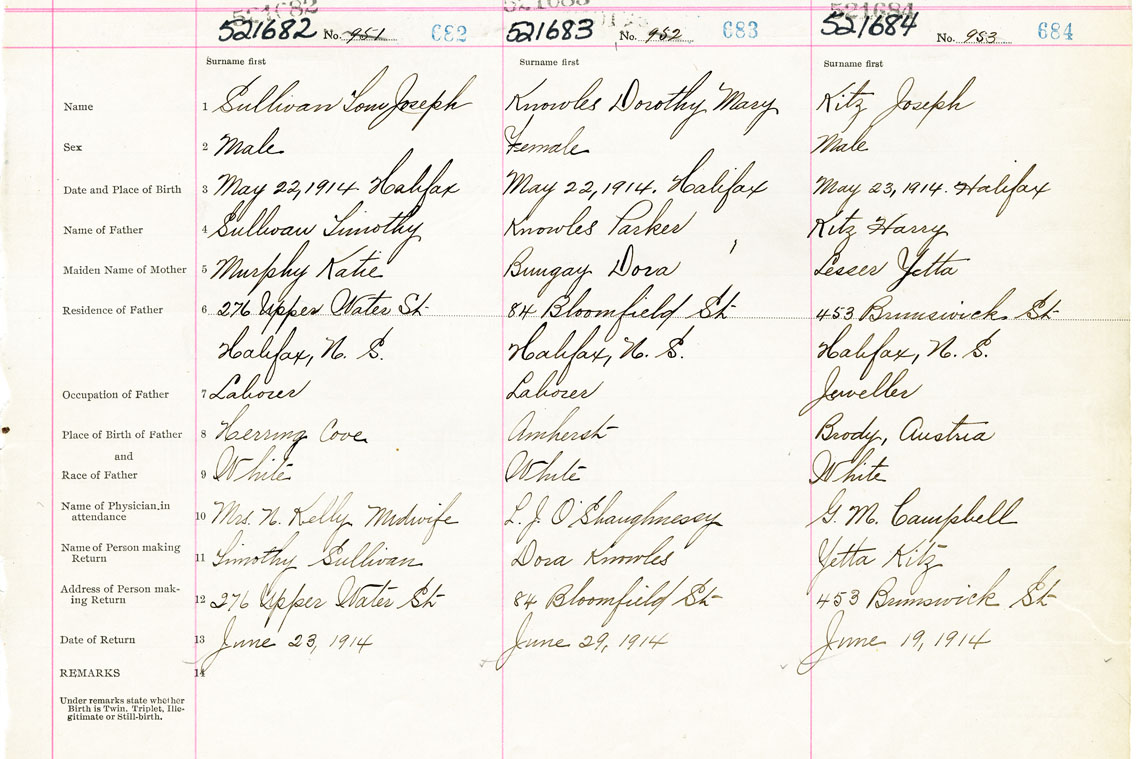 521682 521683 521684
521682 No. 951 682 521683 No. 952 683 521684 No. 953 684
Surname first Surname first Surname first
Name 1 Sullivan Tom Joseph Knowles Dorothy Mary Kitz Joseph
Sex 2 Male Female Male
Date and Place of Birth 3 May 22, 1914. Halifax May 22, 1914. Halifax May 23, 1914. Halifax
Name of Father 4 Sullivan Timothy Knowles Parker Kitz Harry
Maiden Name of Mother 5 Murphy Katie Bungay Dora Lesser Yetta
Residence of Father 6 276 Upper Water St 84 Bloomfield St 453 Brunswick St
Halifax, N. S. Halifax, N. S. Halifax, N. S.
Occupation of Father 7 Laborer Laborer Jeweller
Place of Birth of Father 8 Herring Cove Amherst Brody, Austria
and
Race of Father 9 White White White
Name of Physician in
attendance 10 Mrs. N. Kelly Midwife L. J. O'Shaughnessy G. M. Campbell
Name of Person making
Return 11 Timothy Sullivan Dora Knowles Yetta Kitz
Address of Person mak-
ing Return 12 276 Upper Water St 84 Bloomfield St 453 Brunswick St
Date of Return 13 June 23, 1914 June 29, 1914 June 19, 1914
REMARKS 14
Under remarks state whether
Birth is Twin, Triplet, Ille-
gitimate or Still-birth.